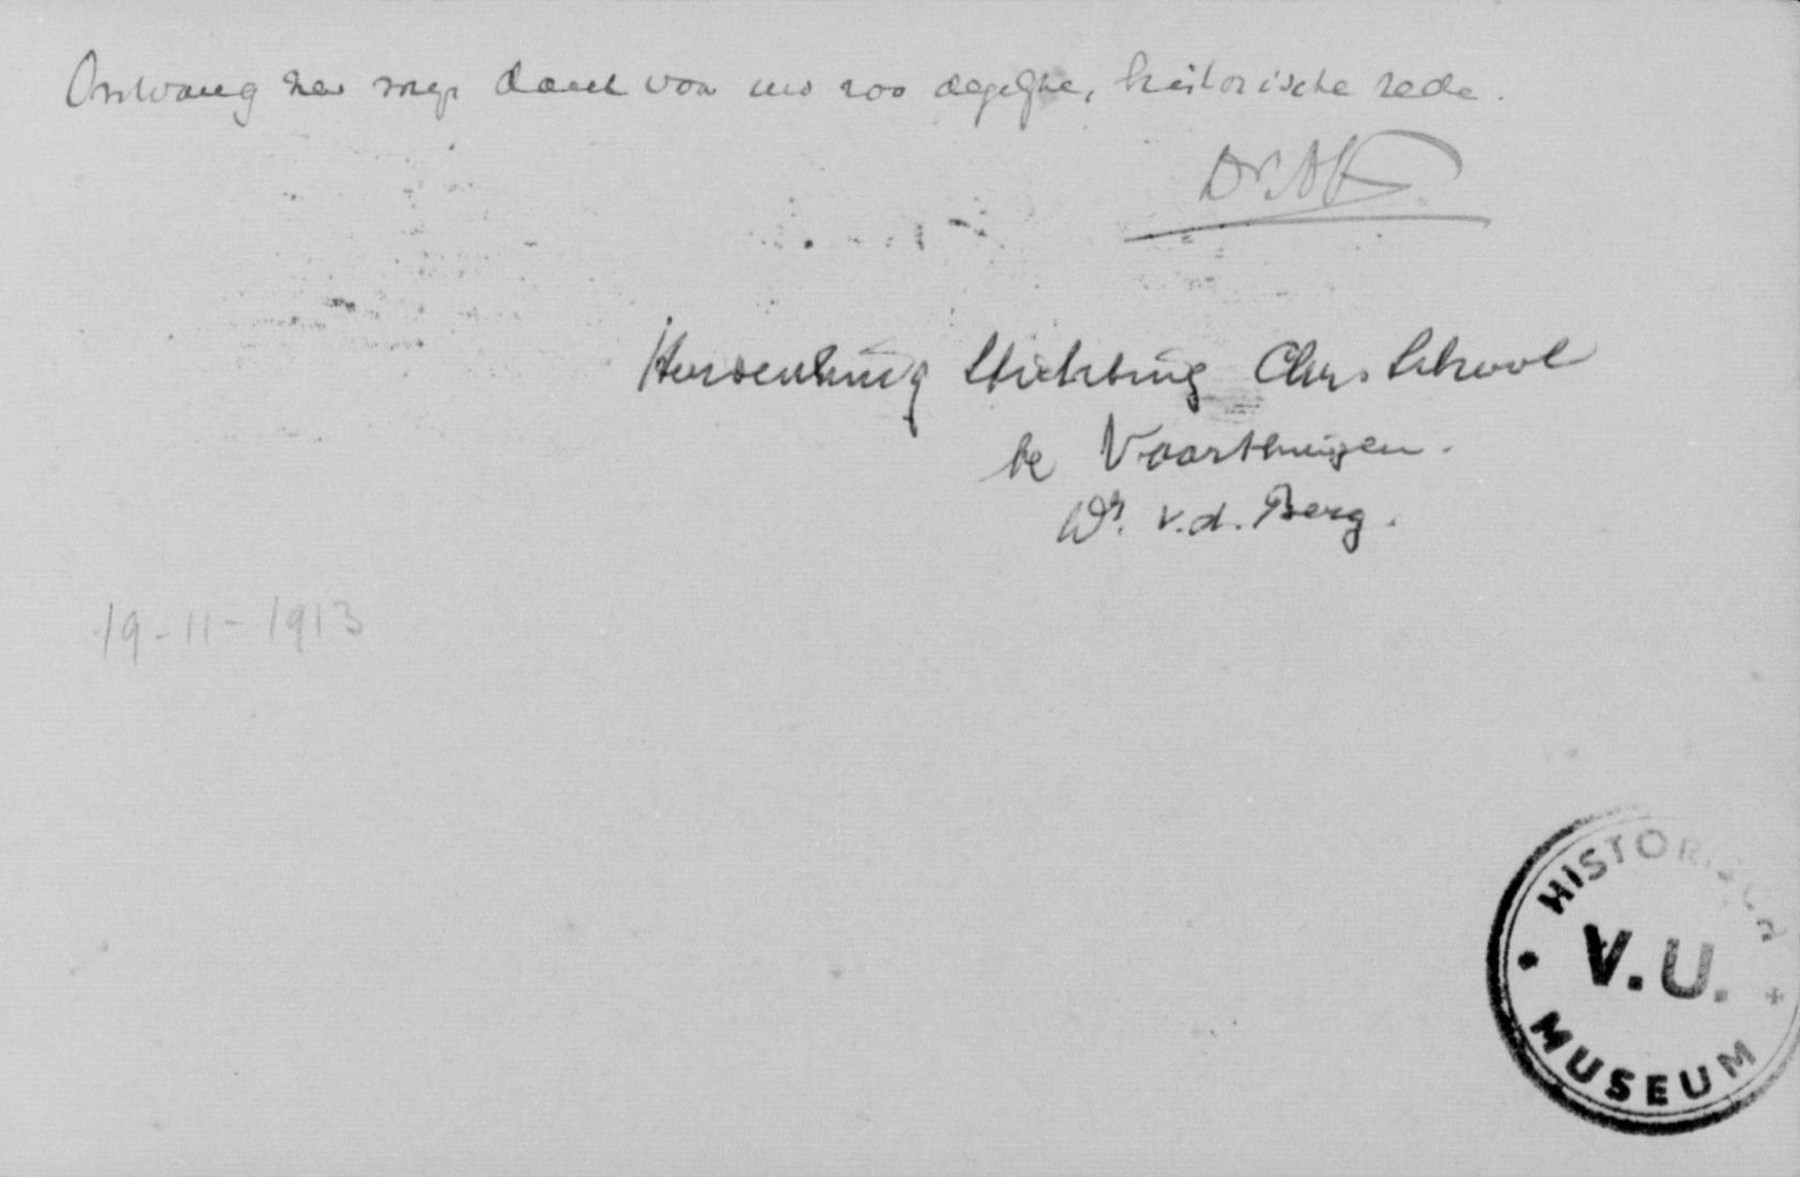 Ontvang zeer mijn dank voor uw zoo degelijke, historische rede.
Dr. AK
Herdenking Stichting Chrs School
te Voorthuizen.
Ds. v.d. Berg.
19-11-1913
HISTORISCH
V.U.
MUSEUM